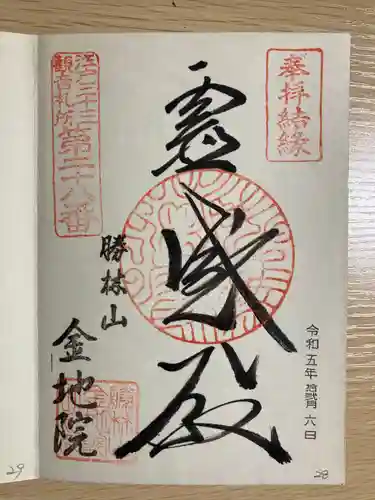 奉拝結縁
江戸三十三
観音札所
第二十八番
霊感殿
勝林山
金地院
令和五年 拾弐月 六日
29
28